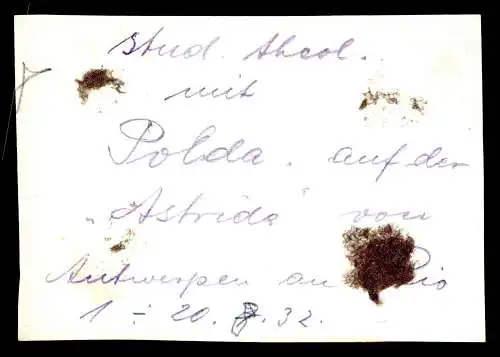 Stud. theol.
mit
Polda. auf der
„Astrida" von
Antwerpen an Rio
1 ÷ 20. 8. 32.